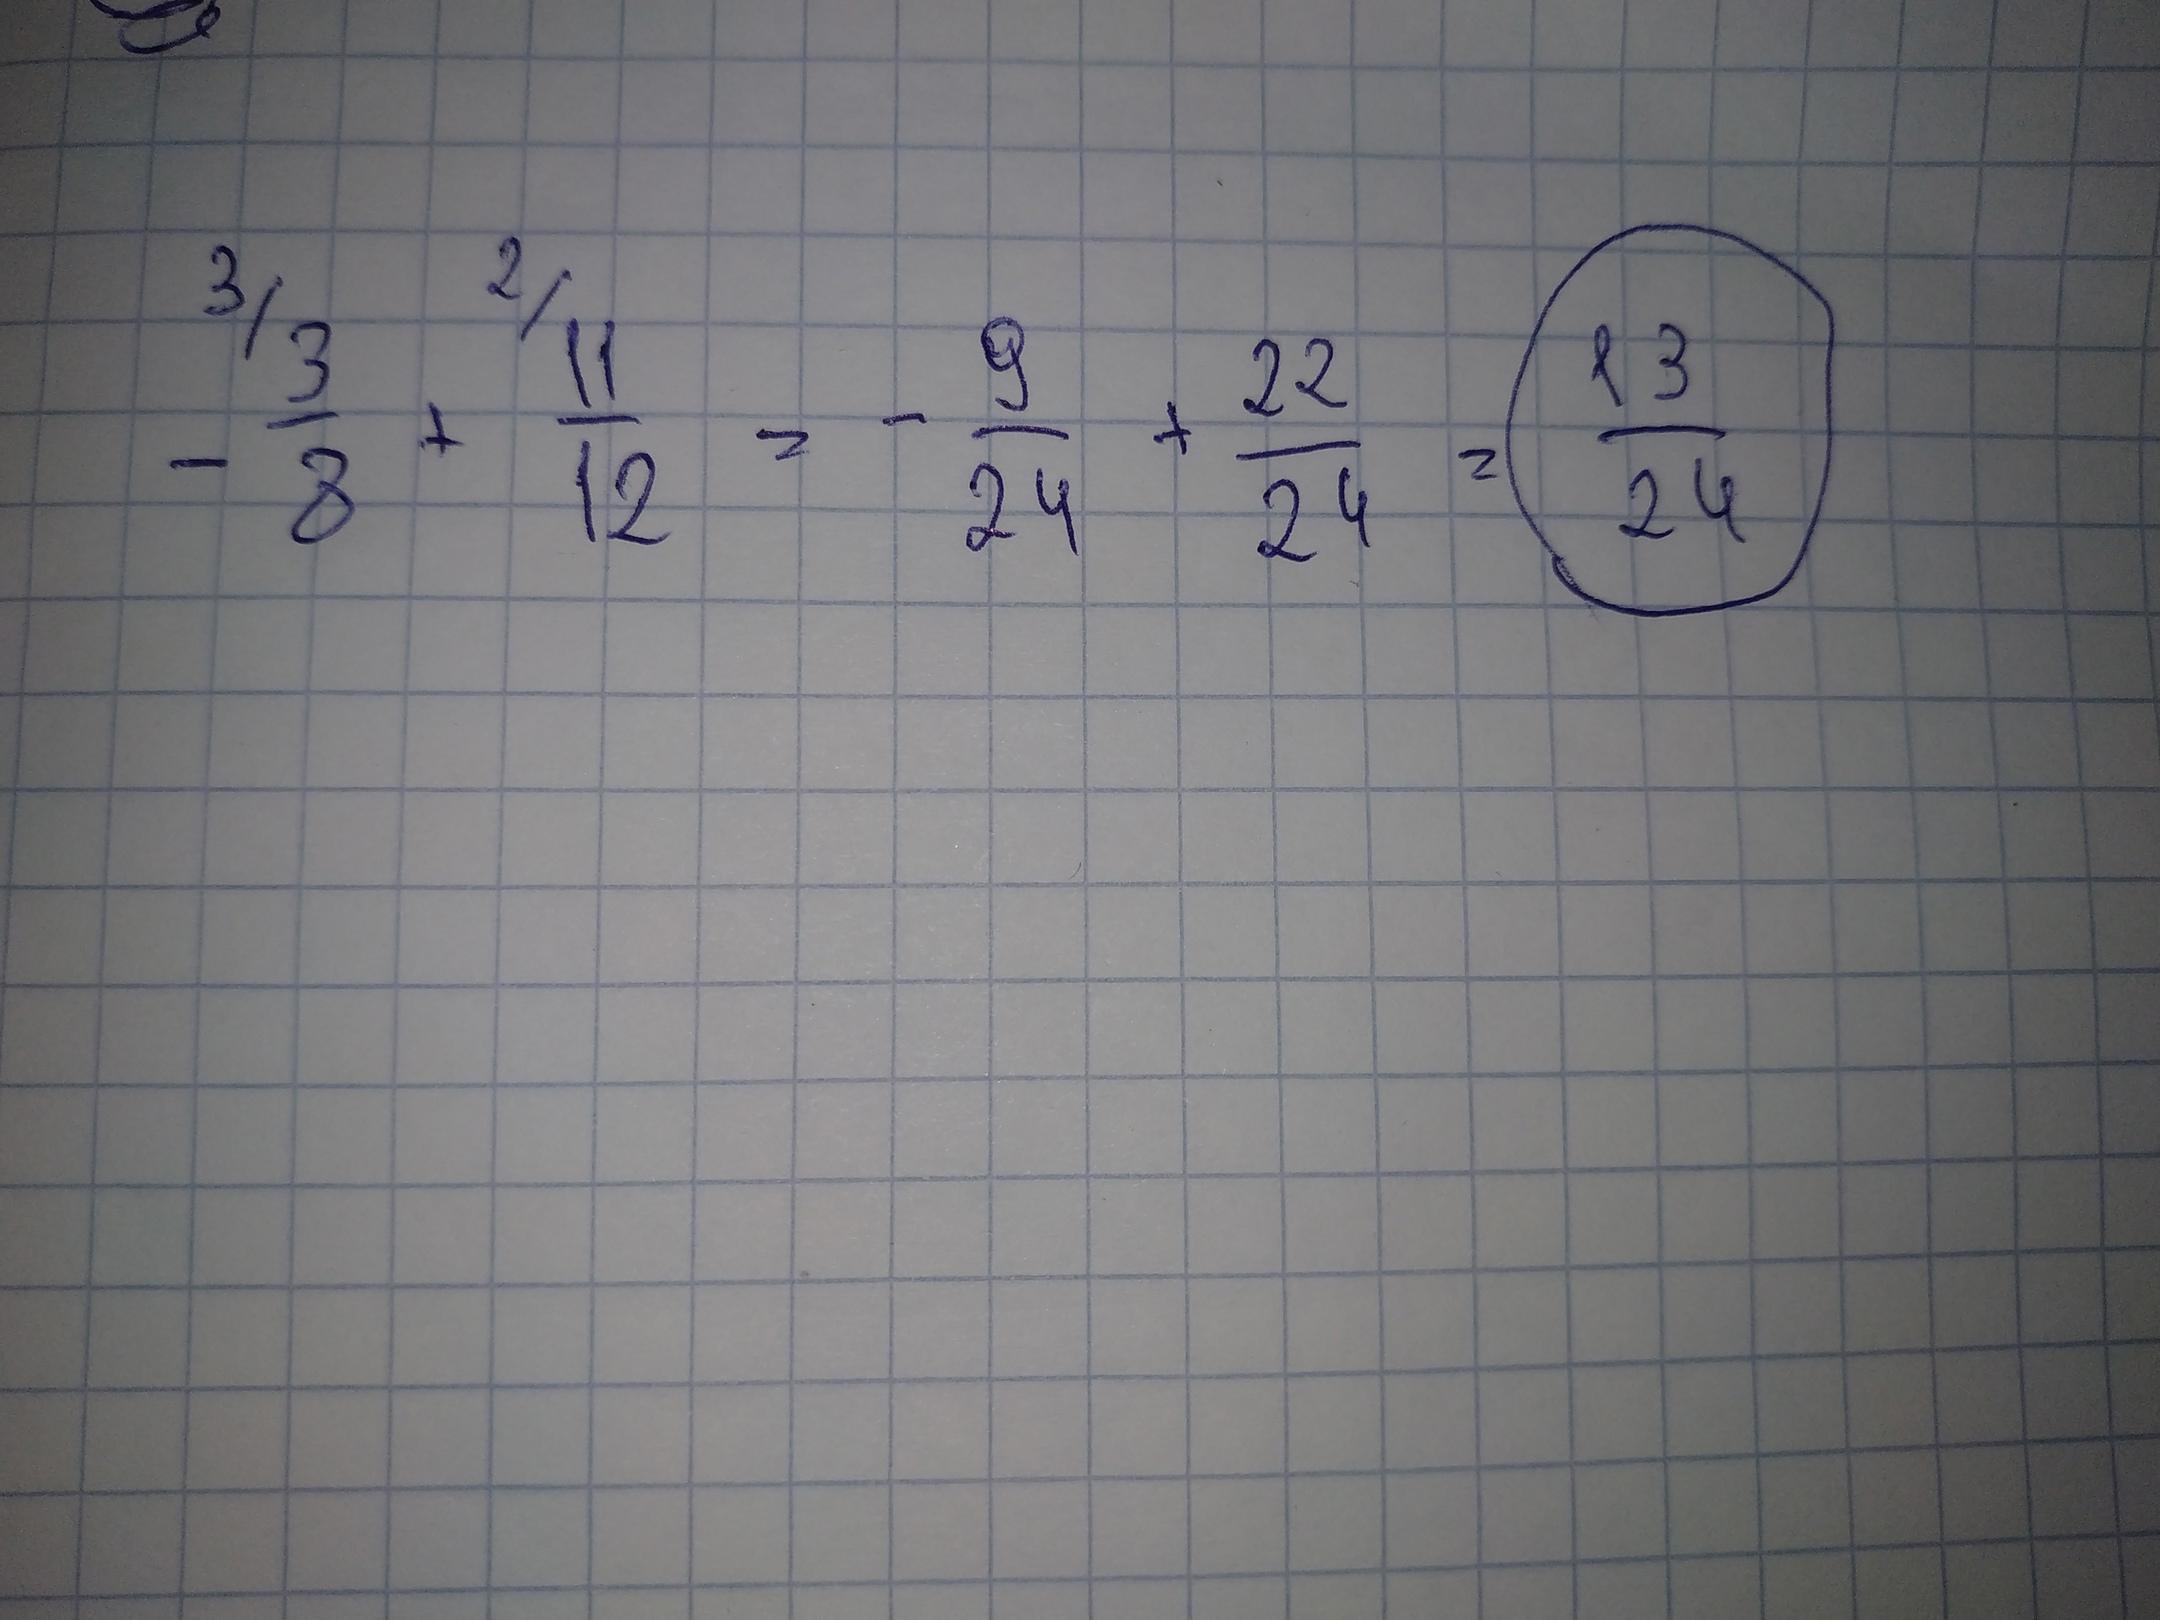 3/ 2/
- 3/8 + 11/12 = - 9/24 + 22/24 = 13/24